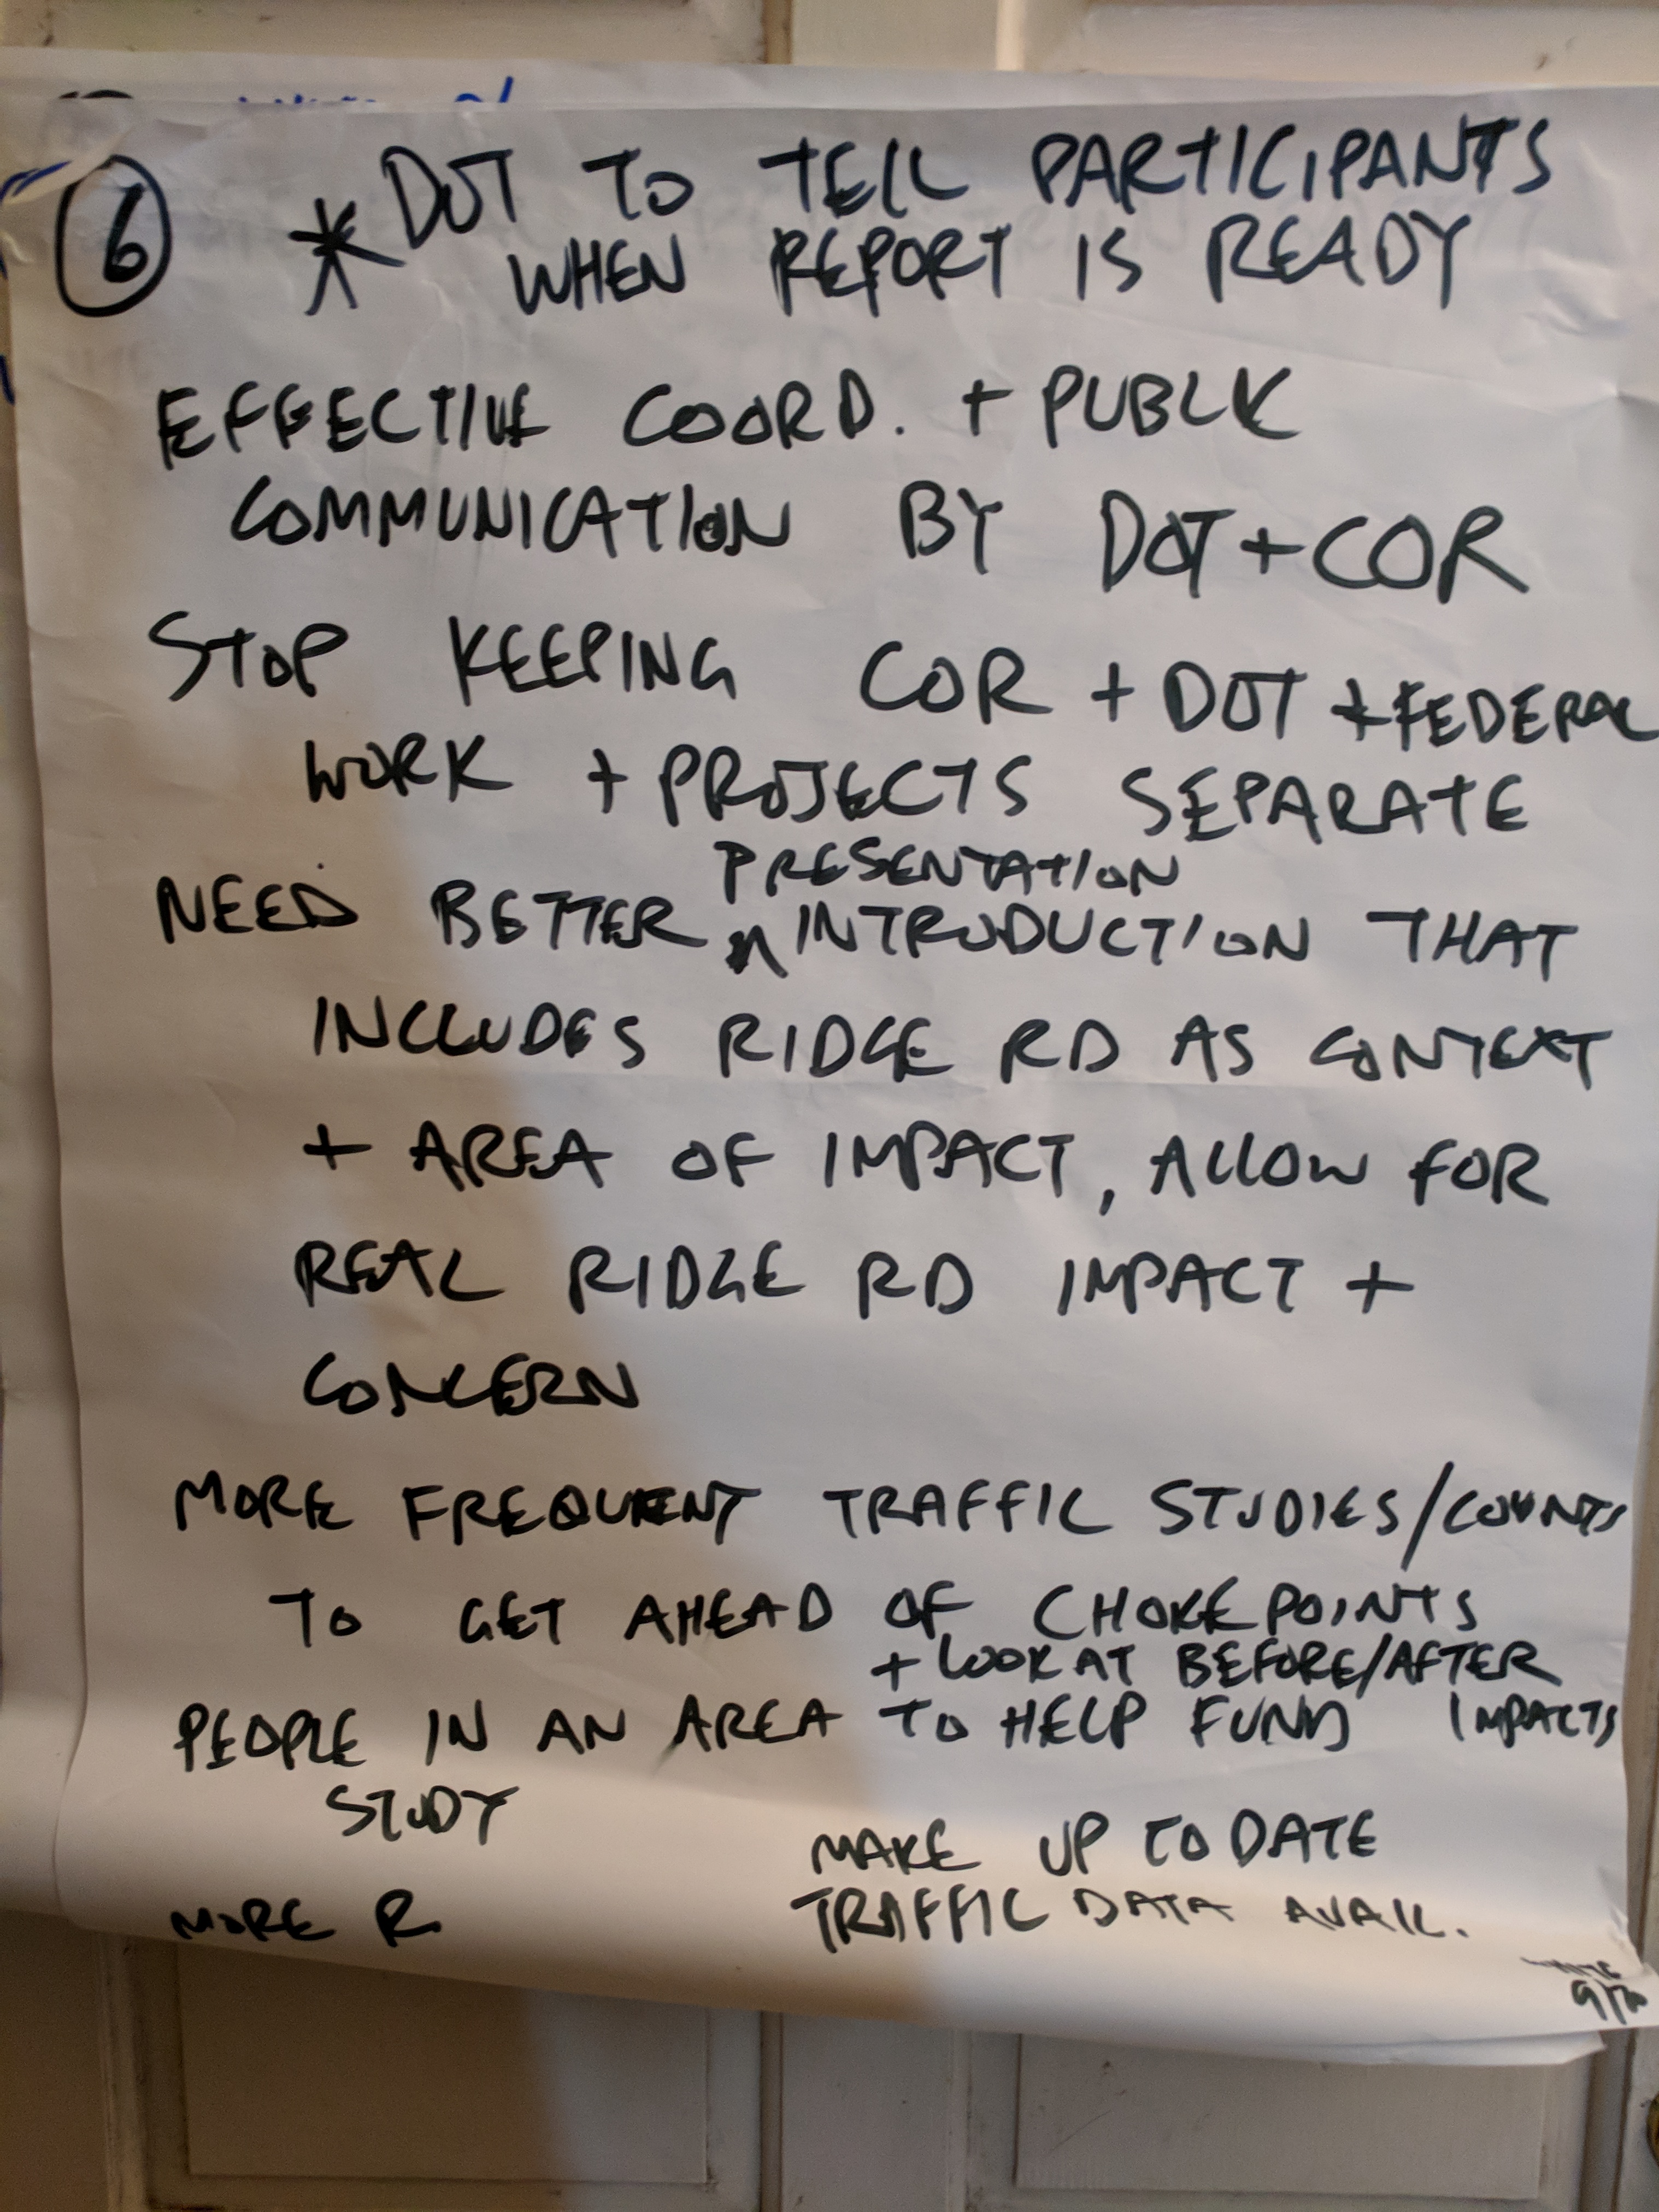 6
* DOT TO TELL PARTICIPANTS
WHEN REPORT IS READY
EFFECTIVE COORD. + PUBLIC
COMMUNICATION BY DOT + COR
STOP KEEPING COR + DOT + FEDERAL
WORK + PROJECTS SEPARATE
PRESENTATION
NEED BETTER ^ INTRODUCTION THAT
INCLUDES RIDGE RD AS CONTEXT
+ AREA OF IMPACT, ALLOW FOR
REAL RIDGE RD IMPACT +
CONCERN
MORE FREQUENT TRAFFIC STUDIES/COUNTS
TO GET AHEAD OF CHOKEPOINTS
+ LOOK AT BEFORE/AFTER
IMPACTS
PEOPLE IN AN AREA TO HELP FUND
STUDY
MAKE UP TO DATE
TRAFFIC DATA AVAIL.
MORE R